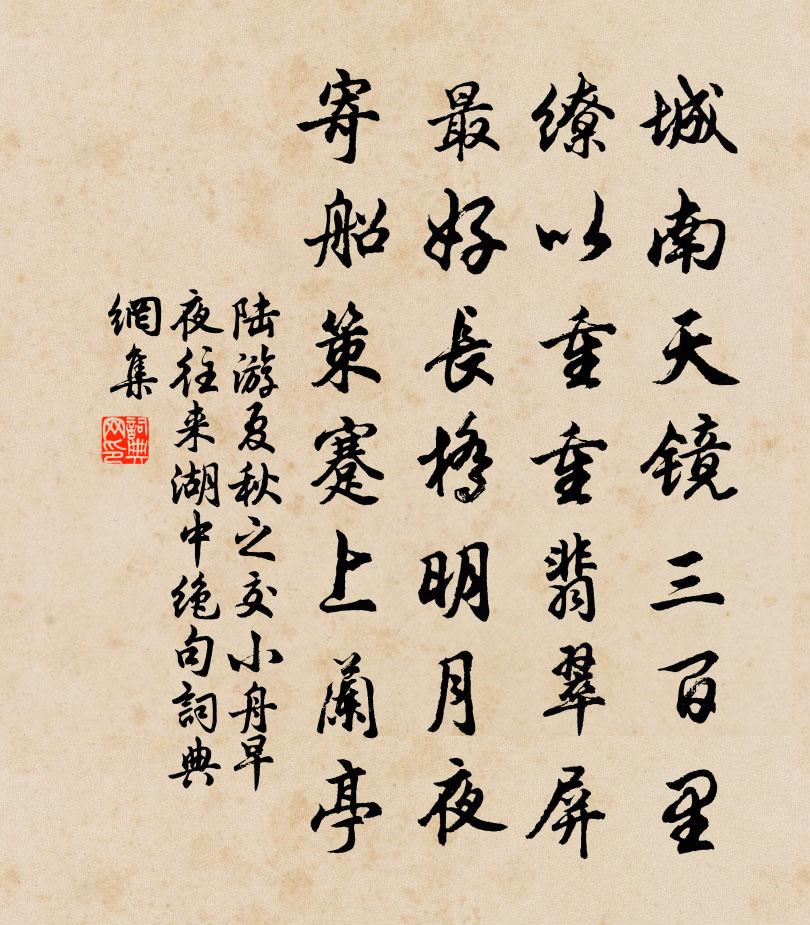 城南天镜三百里
缭以重重翡翠屏
最好長橋明月夜
寄船策蹇上蘭亭
陆游夏秋之交小舟早
夜往来湖中绝句詞典
網集
詞典网印